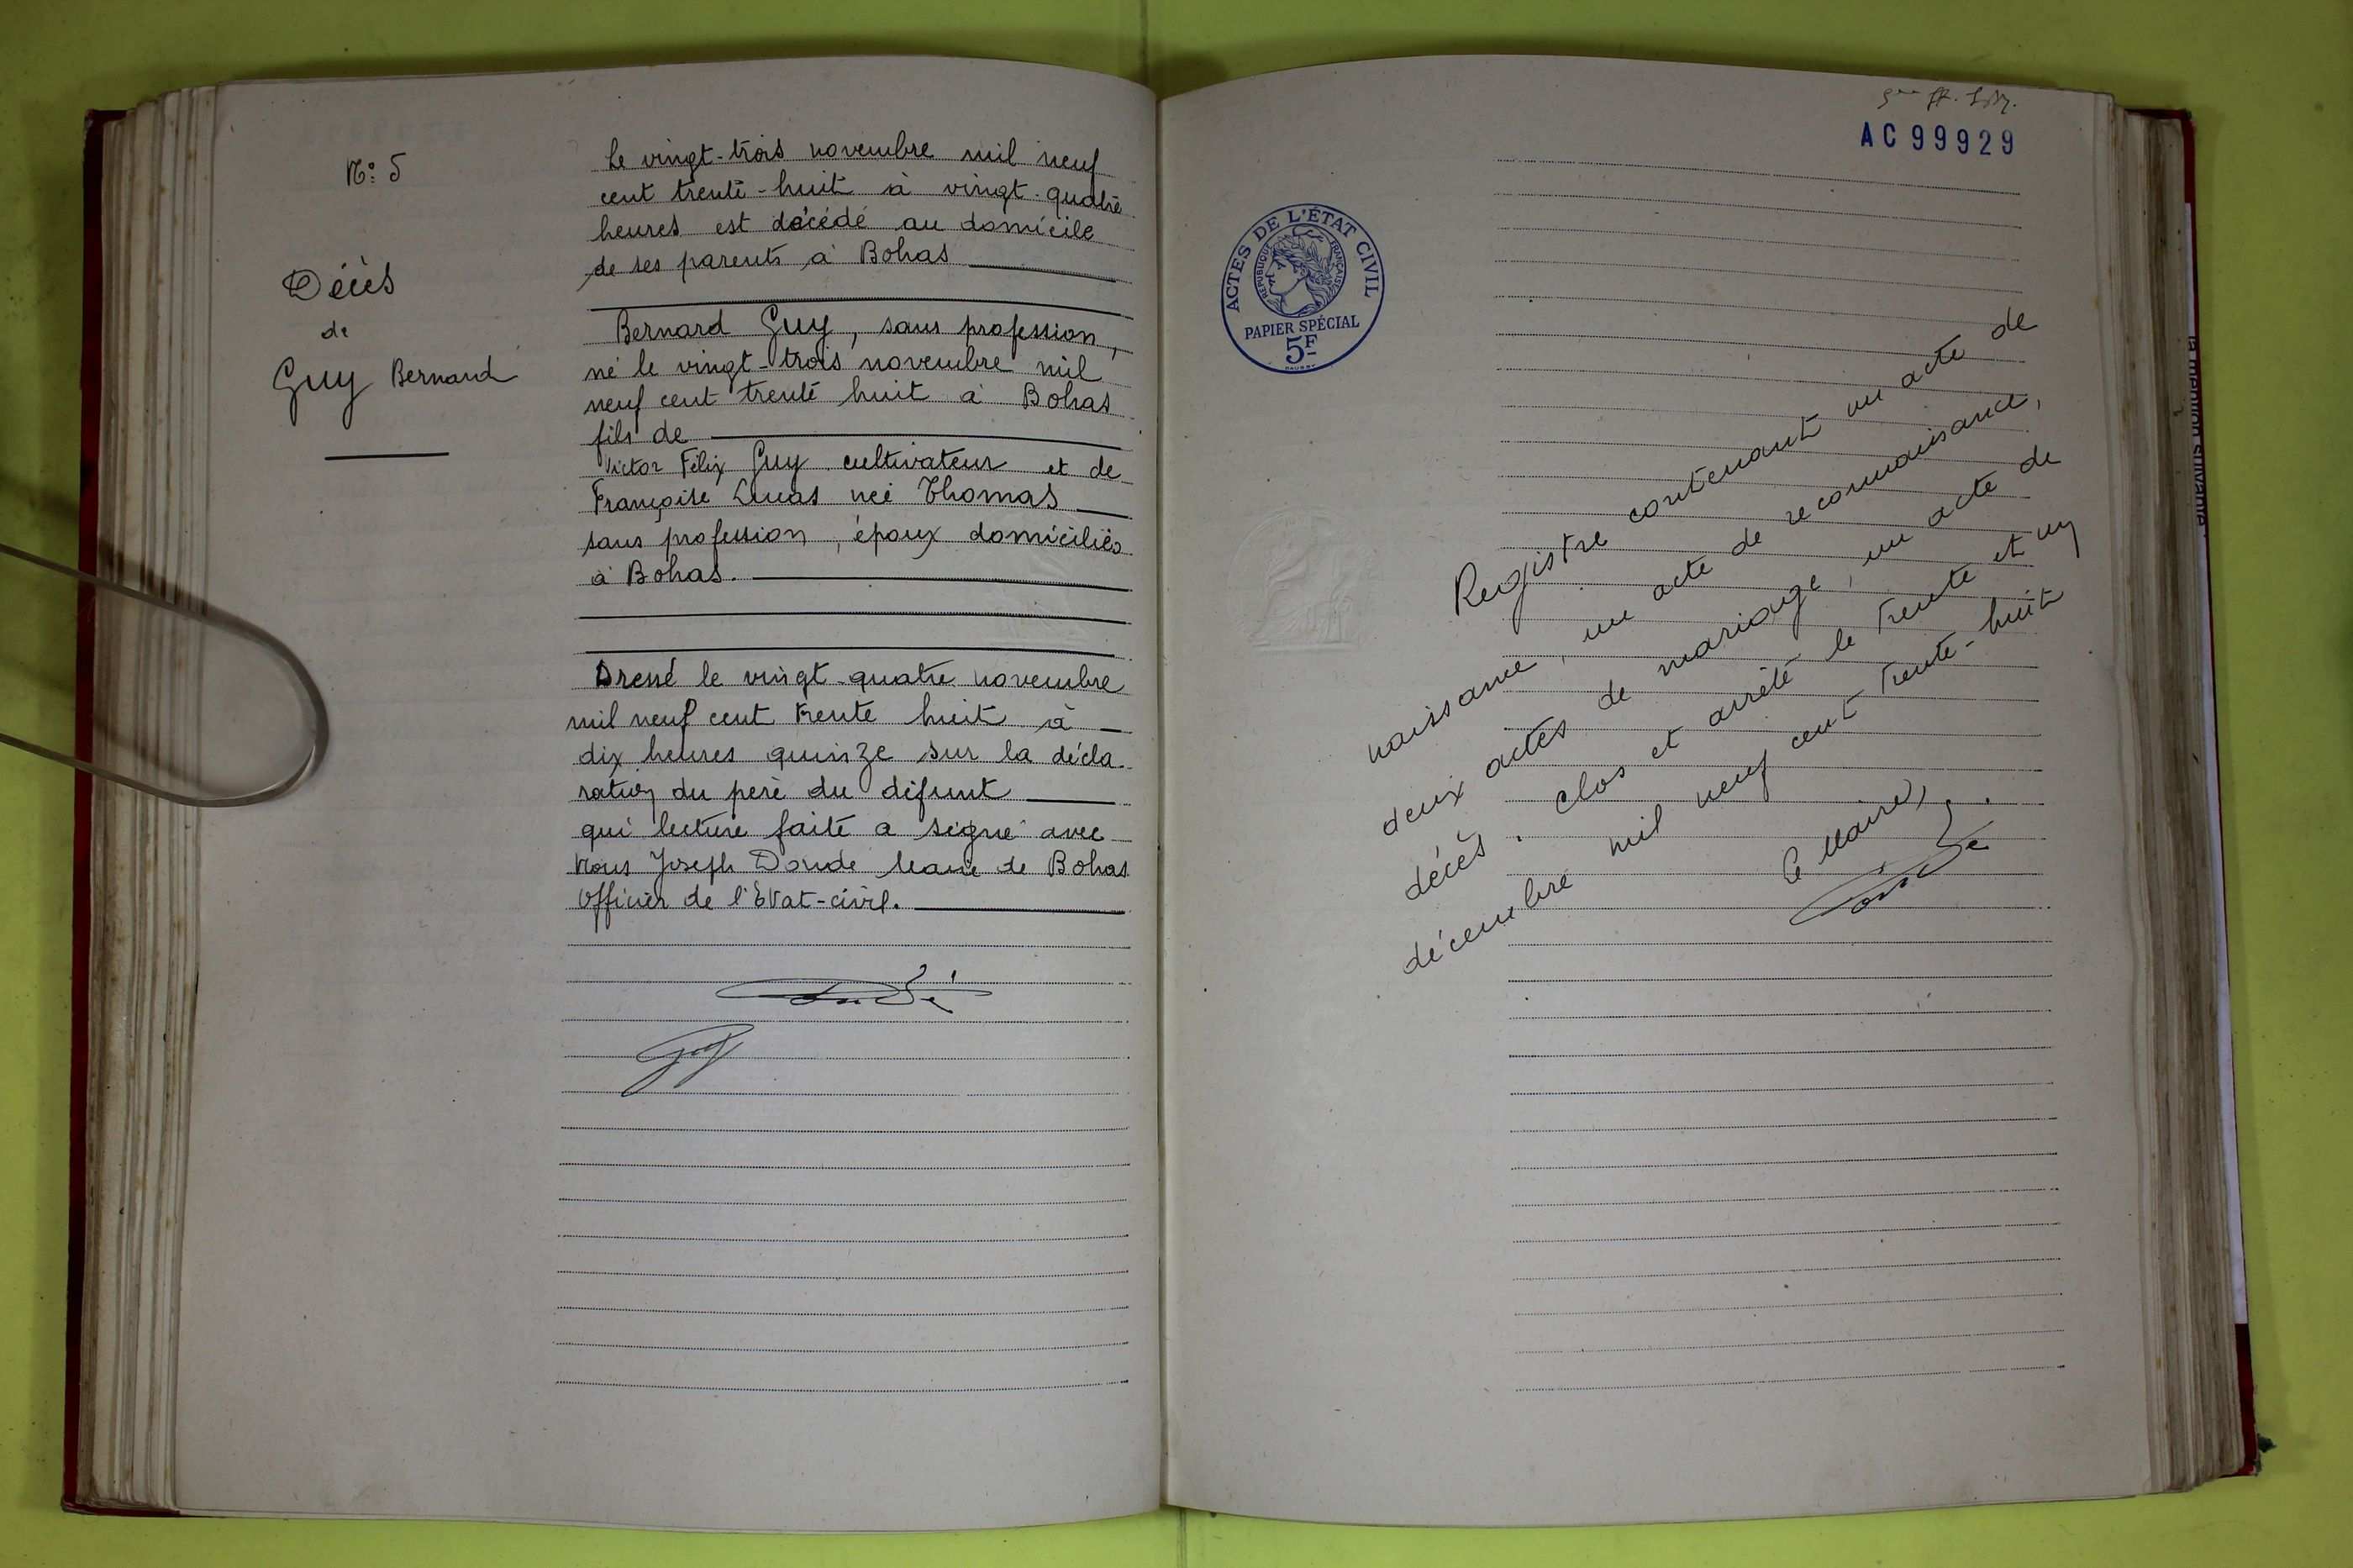 N°: 5
Décès
de
Guy Bernard
Le vingt-trois novembre mil neuf
cent trente-huit à vingt-quatre
heures est décédé au domicile
de ses parents à Bohas
Bernard Guy, sans profession,
né le vingt-trois novembre mil
neuf cent trente huit à Bohas
fils de
Victor Félix Guy cultivateur et de
Françoise Lucas née Thomas
sans profession, époux domiciliés
à Bohas.
Dressé le vingt-quatre novembre
mil neuf cent trente huit à
dix heures quinze sur la décla-
ration du père du défunt
qui lecture faite a signé avec
Nous Joseph Dondé Maire de Bohas
Officier de l'Etat-civil.
Dondé
Guy
AC 99929
ACTES DE L'ÉTAT CIVIL
RÉPUBLIQUE FRANÇAISE
PAPIER SPÉCIAL
5F
Registre contenant un acte de
naissance, un acte de reconnaisance,
deux actes de mariage, un acte de
décès. clos et arrêté le trente et un
décembre mil neuf cent trente-huit
Le Maire,
Dondé
la mention suivante